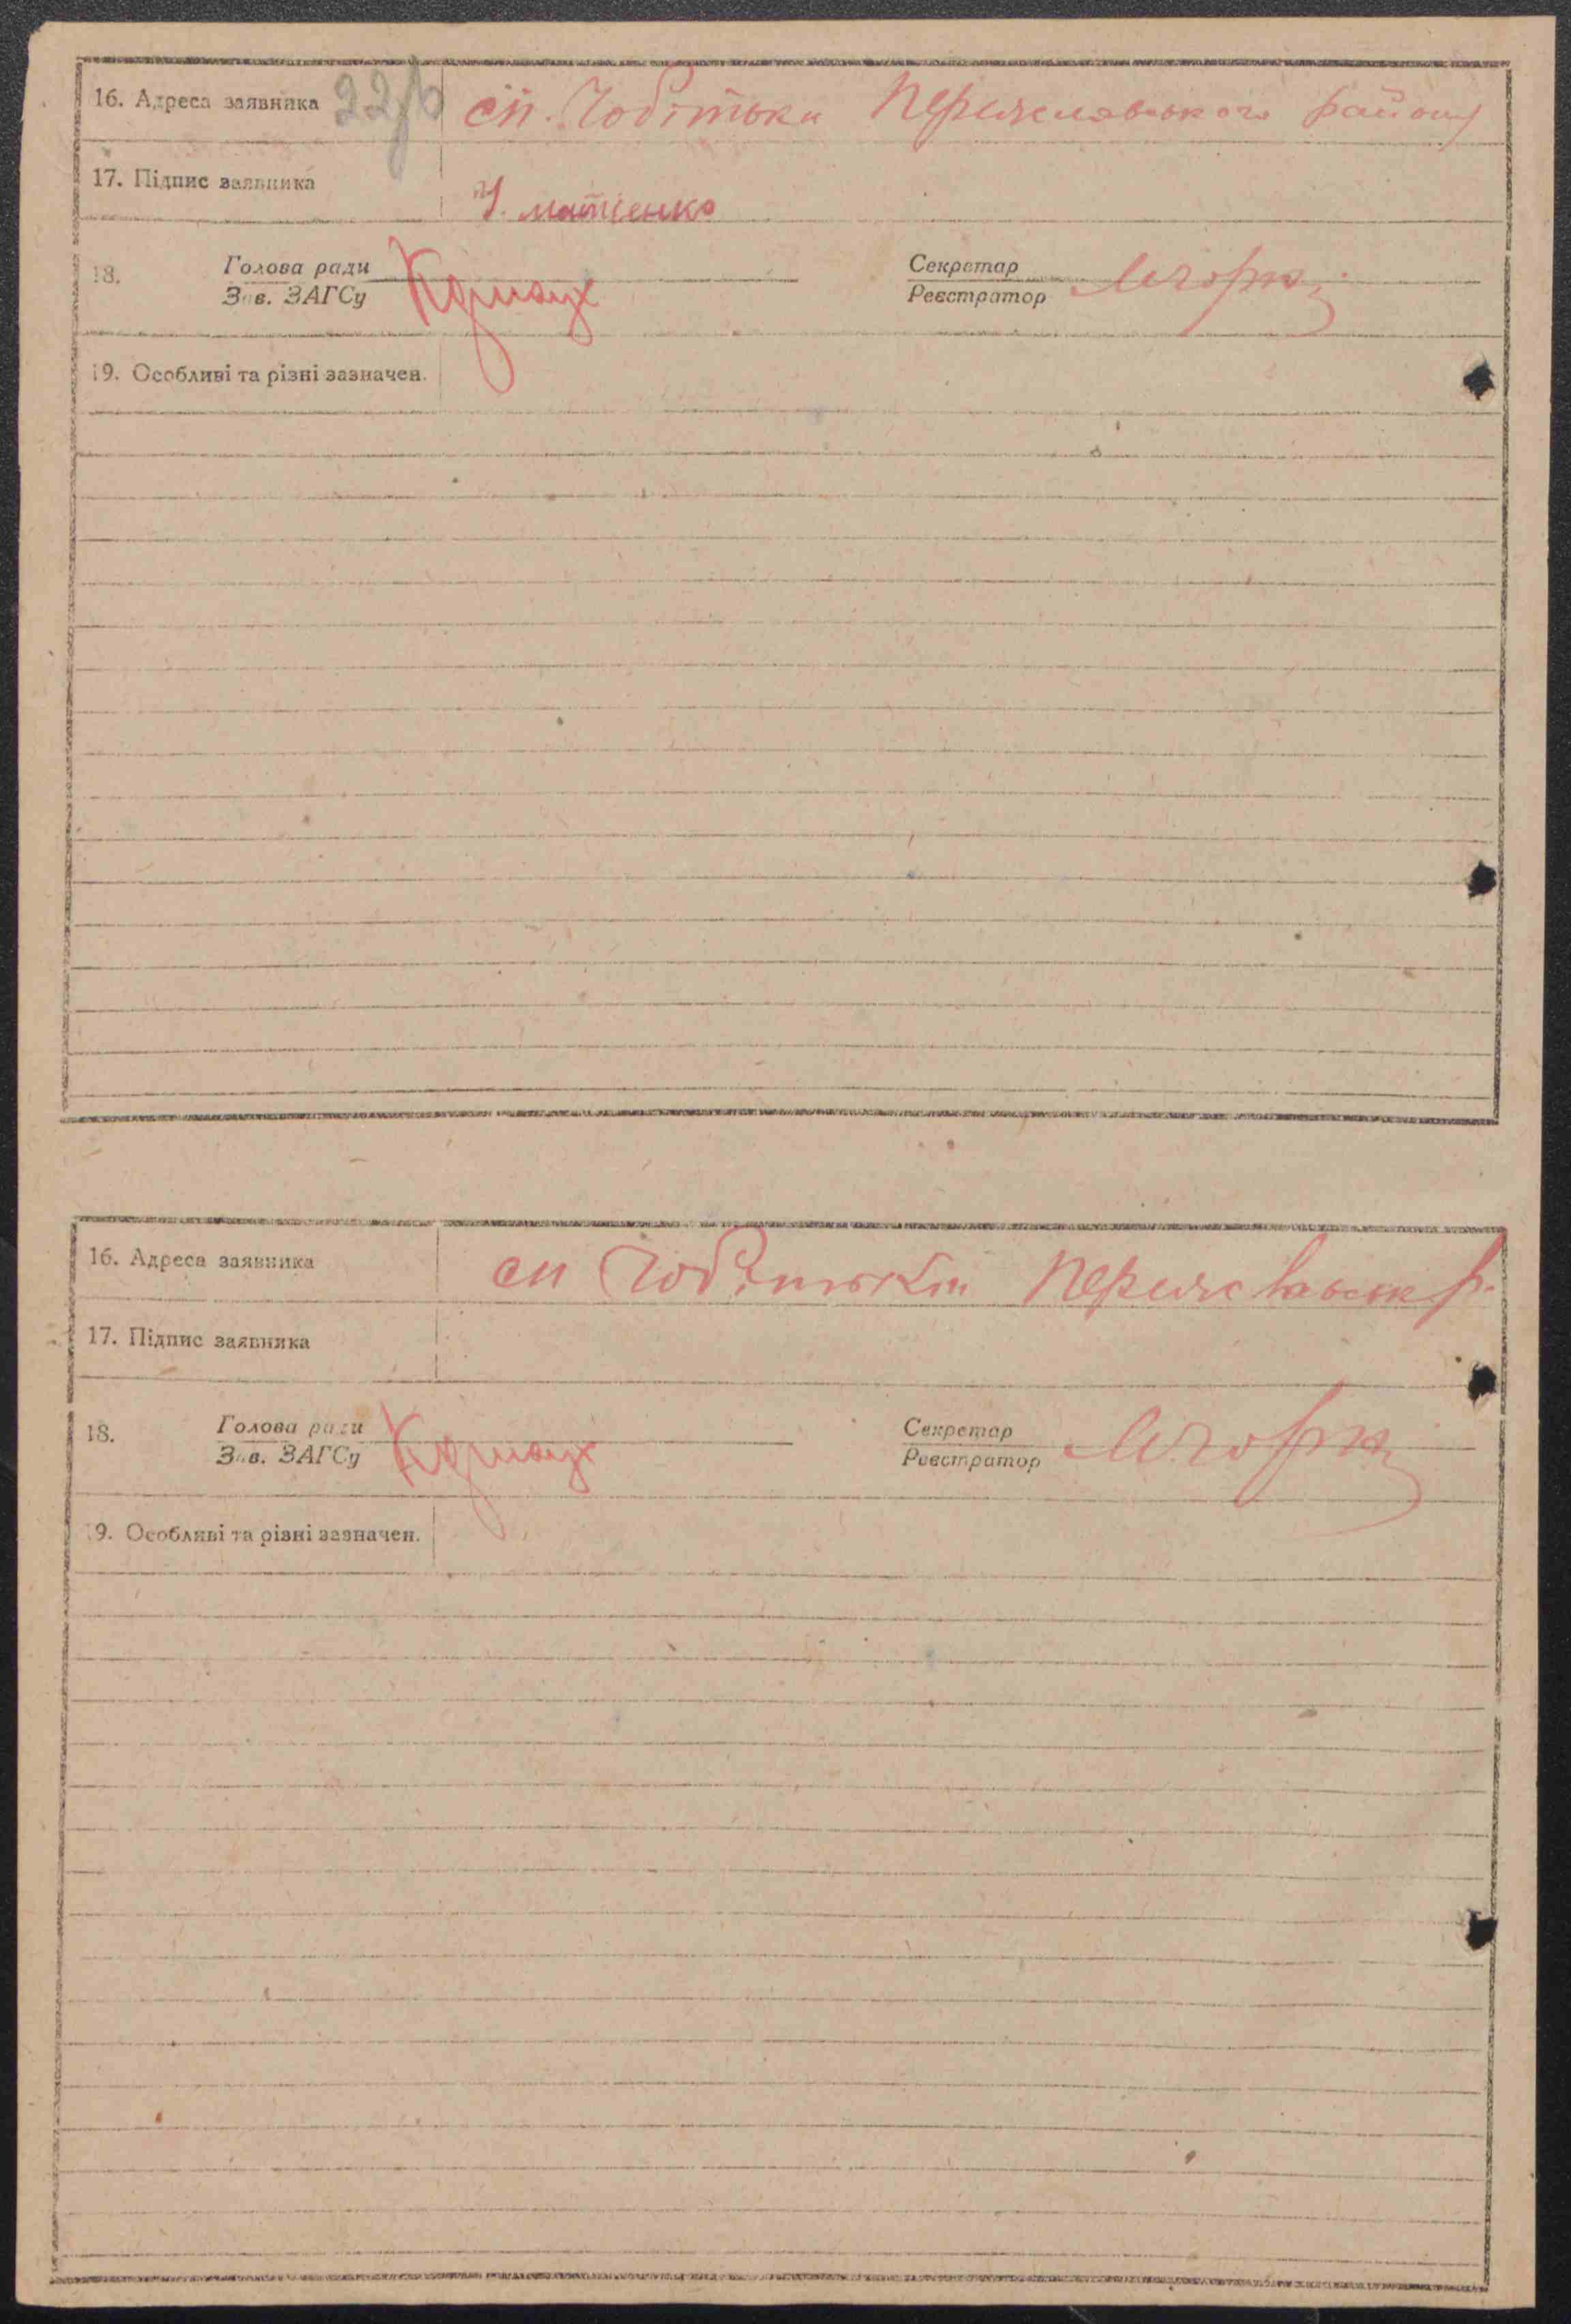 16. Адреса заявника 22/б сп. Чобітьки Переяславського району
17. Підпис заявника
матієнко
18. Голова ради Секретар
Зав. ЗАГСу Реєстратор
19. Особливі та різні зазначен.
16. Адреса заявника сп Чобітьки
17. Підпис заявника
18. Голова ради Секретар
Зав. ЗАГСу Реєстратор
19. Особливі та різні зазначен.